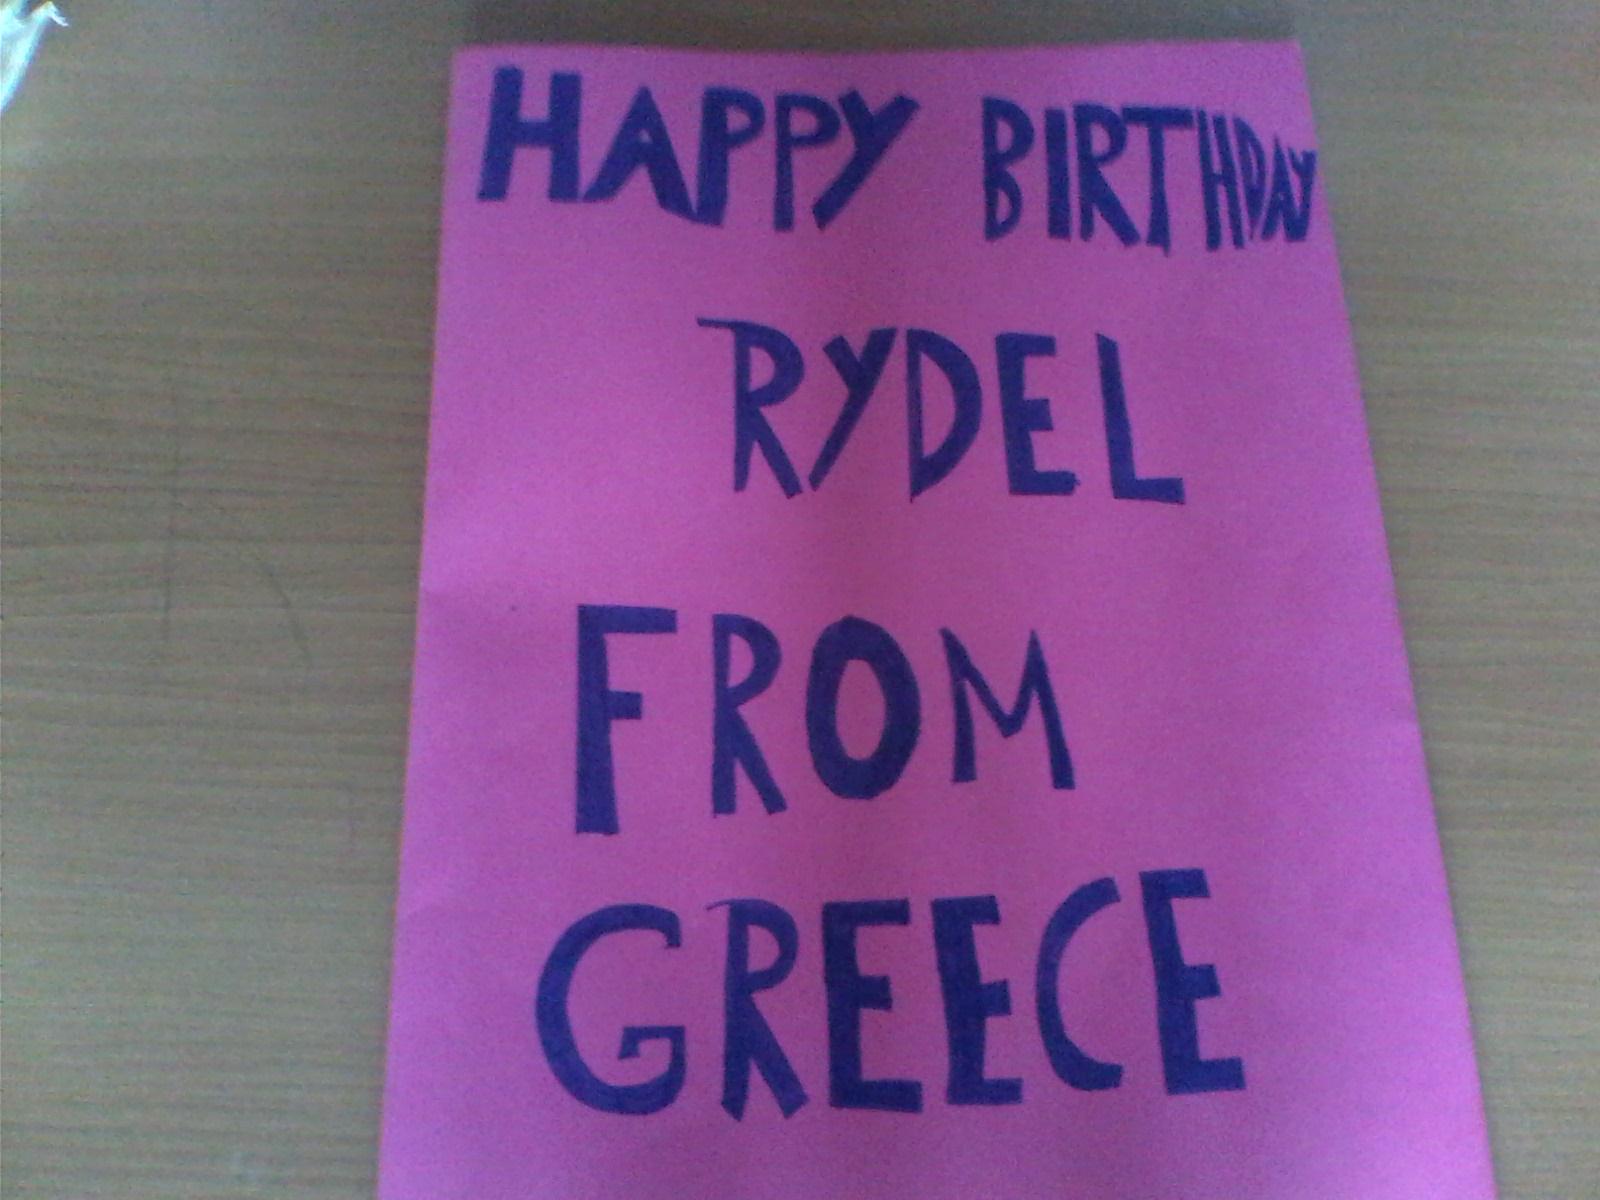 HAPPY BIRTHDAY
RYDEL
FROM
GREECE